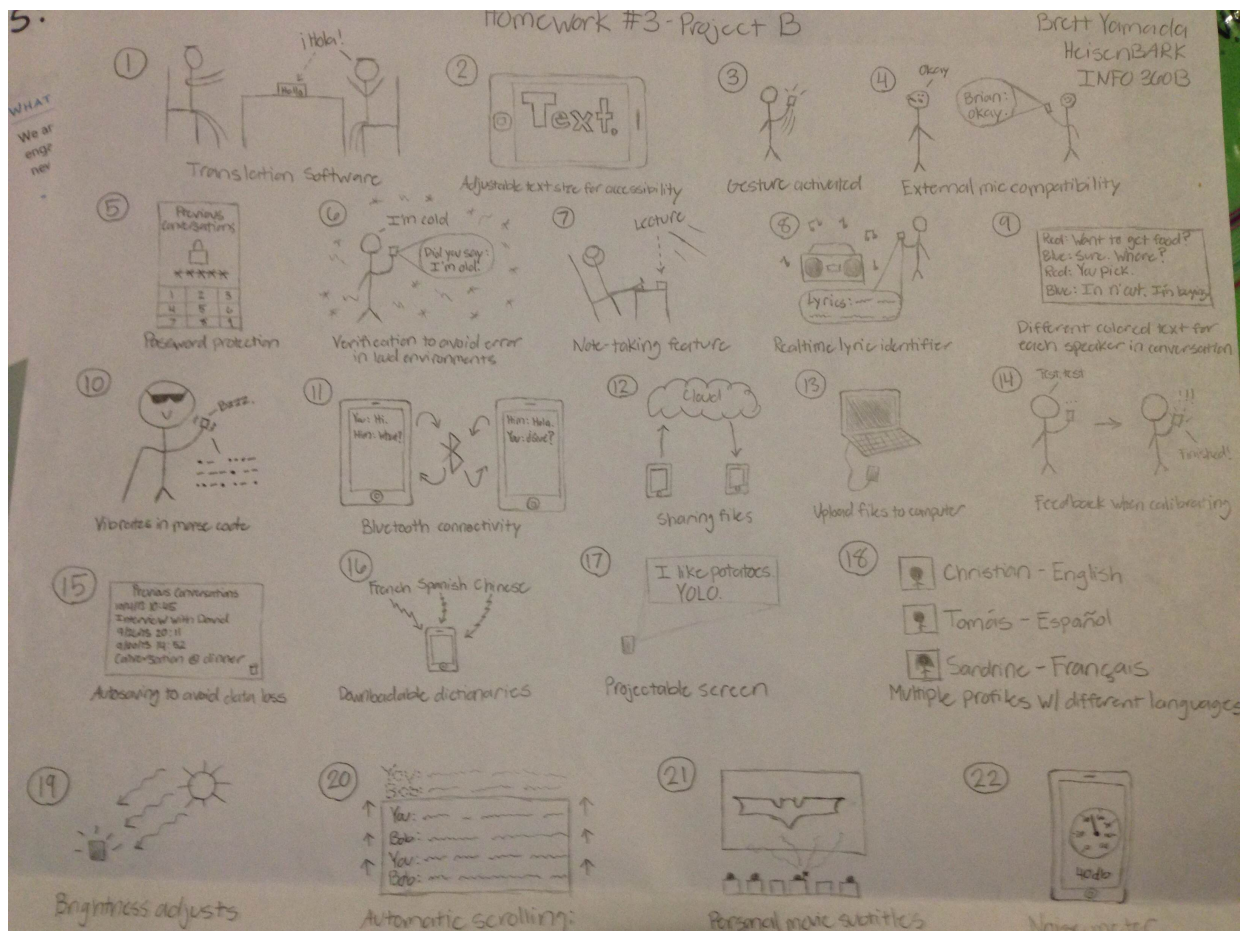 5.
Homework #3-Project B
Brett Yamada
HeisenBARK
INFO 360B
WHAT
We ar
enge
nev
1
¡Hola!
Hello
Translation Software
2
Text.
Adjustable text size for accessibility
3
Gesture activated
4
Okay
Brian:
okay.
External mic compatibility
5
Previous
conversations
*****
1 2 3
4 5 6
7 8 9
Password protection
6
I'm cold
Did you say:
I'm old?
Verification to avoid error
in loud environments
7
Lecture
Note-taking feature
8
Lyrics:
Realtime lyric identifier
9
Red: Want to get food?
Blue: Sure. Where?
Red: You pick.
Blue: In n' out. I'm buying
Different colored text for
each speaker in conversation
10
Bzzz.
Vibrates in morse code
11
You: Hi.
Him: What?
Him: Hola.
You: ¿Que?
Bluetooth connectivity
12
Cloud
Sharing files
13
Upload files to computer
14
Test, test
!!!
Finished!
Feedback when calibrating
15
Previous Conversations
10:45
Interview with David
9/26/15 20:11
14:52
Conversation @ dinner
Autosaving to avoid data loss
16
French Spanish Chinese
Downloadable dictionaries
17
I like potatoes.
YOLO.
Projectable screen
18
Christian - English
Tomás - Español
Sandrine - Français
Multiple profiles w/ different languages
19
Brightness adjusts
20
You:
Bob:
You:
Bob:
You:
Bob:
Automatic scrolling:
21
Personal movie subtitles
22
40db
Noise meter